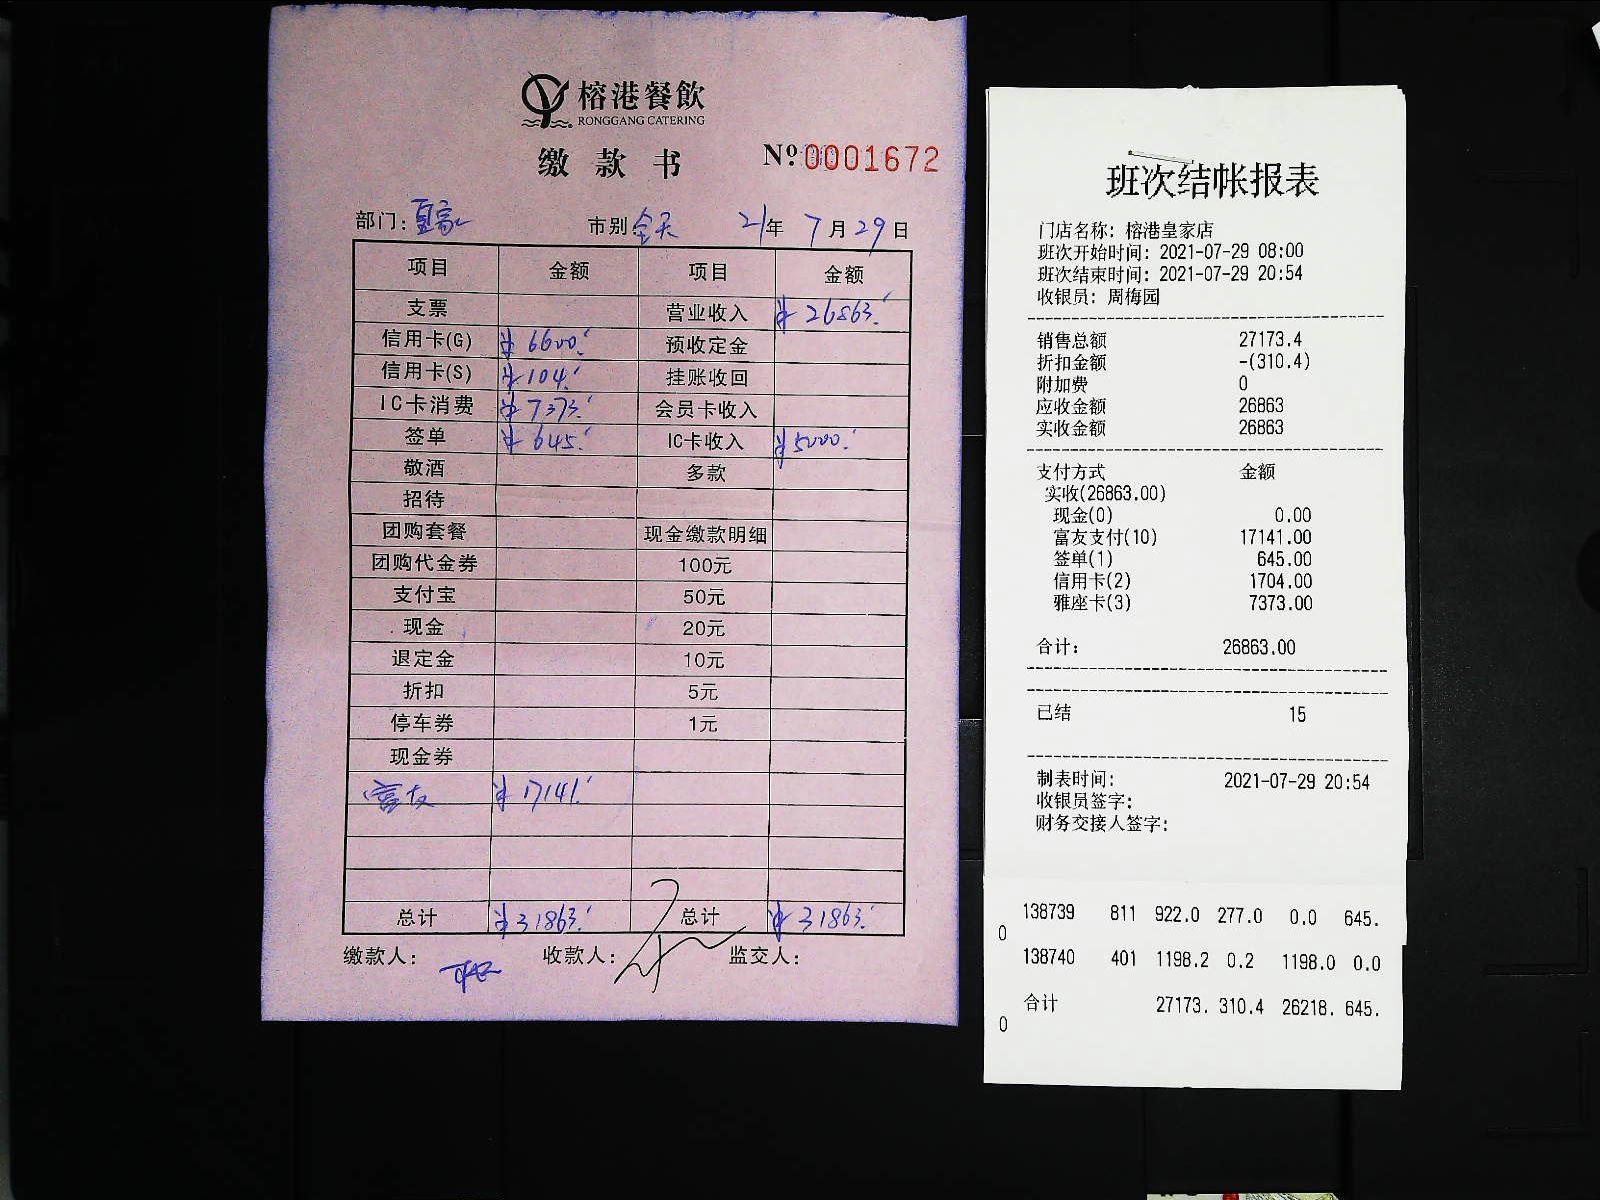 榕港餐飲
RONGGANG CATERING
缴款书 Nº 0001672
部门: 皇家 市别: 全天 21年 7月29日
项目 金额 项目 金额
支票 营业收入 ¥26863.
信用卡(G) ¥6600. 预收定金
信用卡(S) ¥104. 挂账收回
IC卡消费 ¥7373. 会员卡收入
签单 ¥645. IC卡收入 ¥5000.
敬酒 多款
招待
团购套餐 现金缴款明细
团购代金券 100元
支付宝 50元
现金 20元
退定金 10元
折扣 5元
停车券 1元
现金券
富友 ¥17141.
总计 ¥31863. 总计 ¥31863.
缴款人: 收款人: 监交人:
班次结帐报表
门店名称: 榕港皇家店
班次开始时间: 2021-07-29 08:00
班次结束时间: 2021-07-29 20:54
收银员: 周梅园
销售总额 27173.4
折扣金额 -(310.4)
附加费 0
应收金额 26863
实收金额 26863
支付方式 金额
实收(26863.00)
现金(0) 0.00
富友支付(10) 17141.00
签单(1) 645.00
信用卡(2) 1704.00
雅座卡(3) 7373.00
合计: 26863.00
已结 15
制表时间: 2021-07-29 20:54
收银员签字:
财务交接人签字:
138739 811 922.0 277.0 0.0 645.
0
138740 401 1198.2 0.2 1198.0 0.0
合计 27173. 310.4 26218. 645.
0